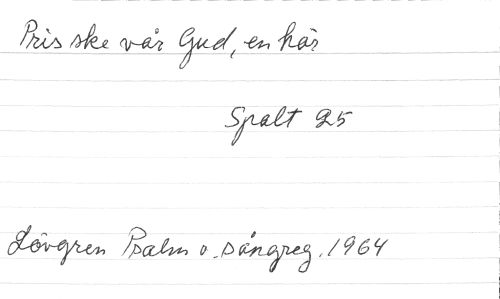 Pris ske vår Gud, en här
Spalt 25
Lövgren Psalm o. sångreg. 1964